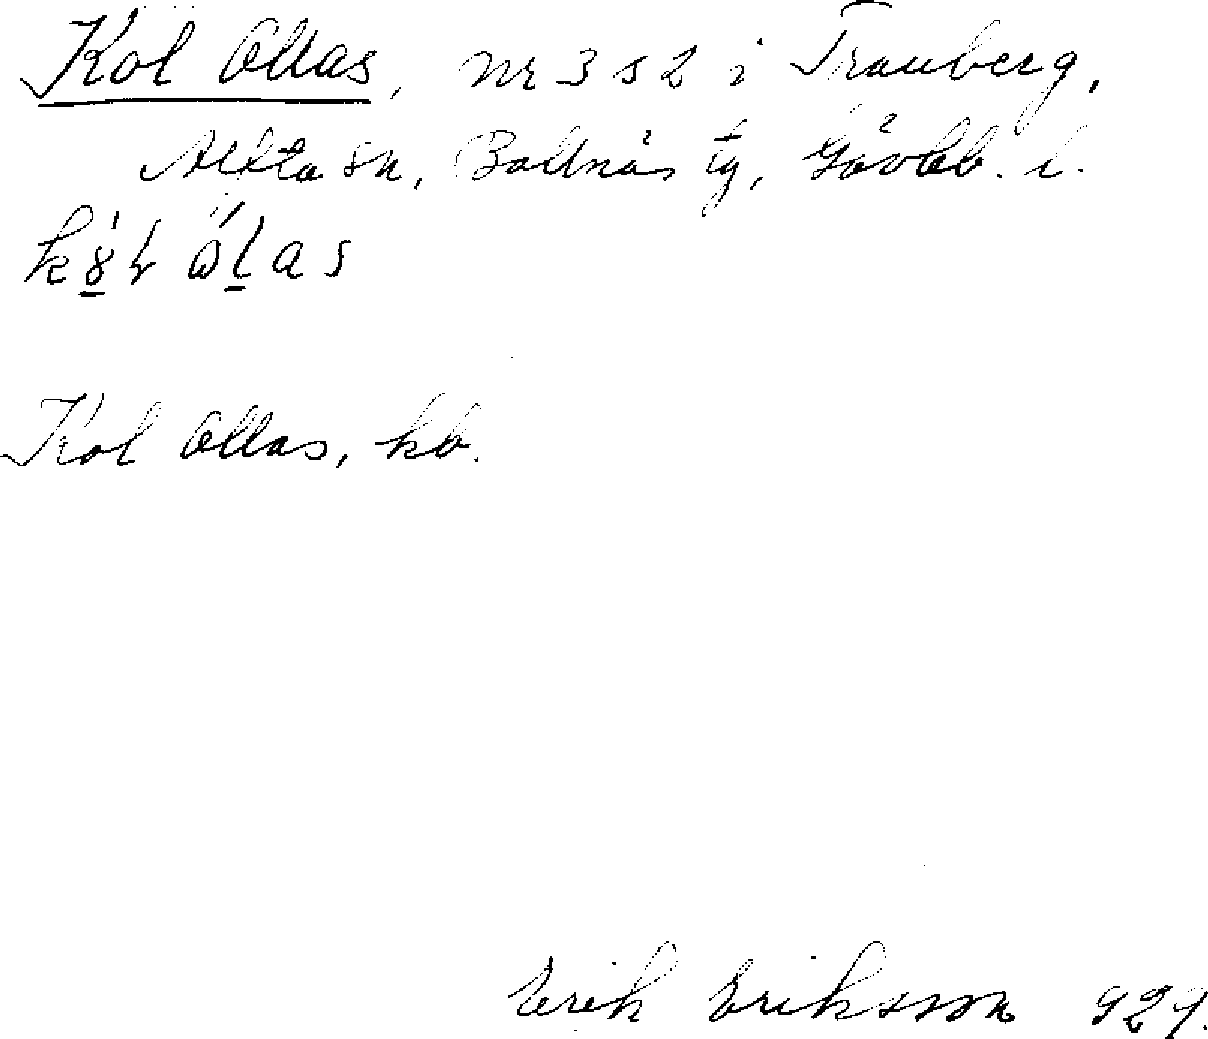 Kol Ollas, nr 3 s 2 i Tranberg,
Alfta sn, Bollnäs tg, Gävleb. l.
Kol Ollas, kb.
Erik Eriksson 929.